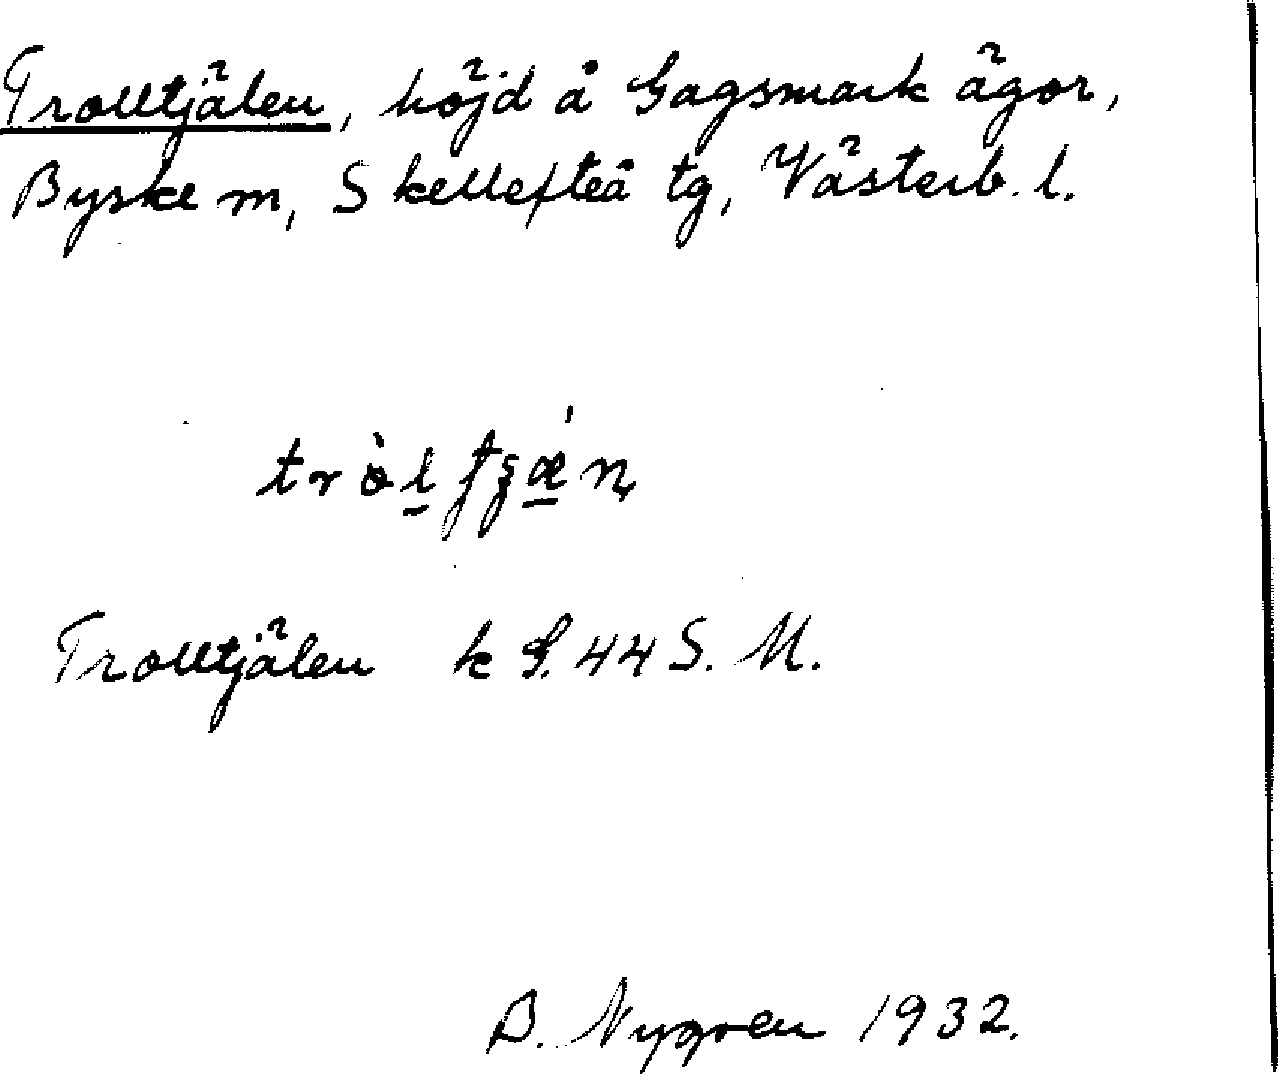 Trolltjälen, höjd å Gagsmark ägor,
Byske m, Skellefteå tg, Västerb. l.
Trolltjälen k S. 44 S. M.
B. Nygren 1932.